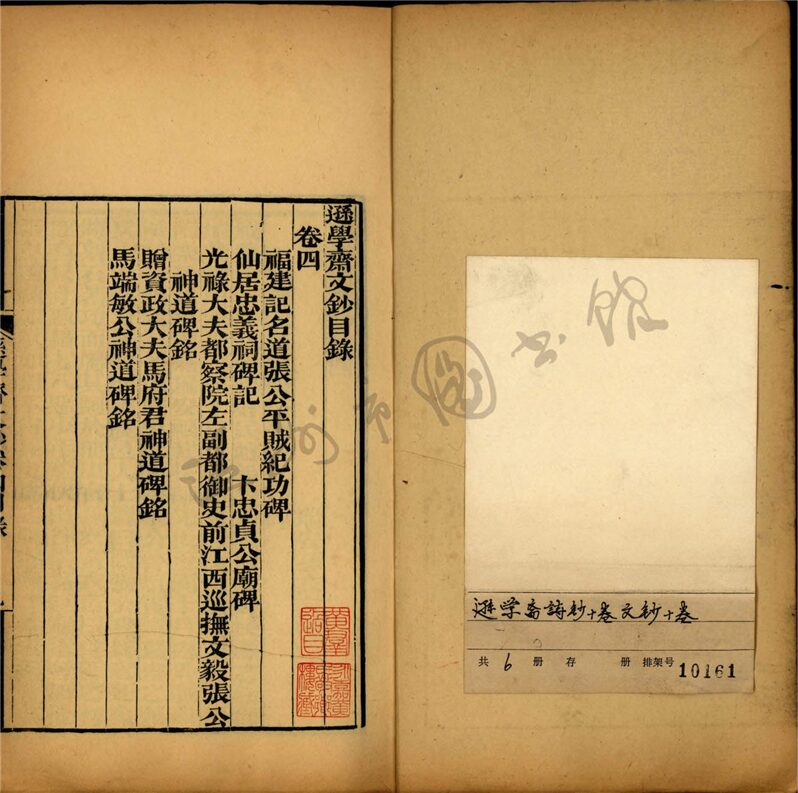 遜學齋文鈔目錄
卷四
福建記名道張公平賊紀功碑
仙居忠義祠碑記 卞忠貞公廟碑
光祿大夫都察院左副都御史前江西巡撫文毅張公
神道碑銘
贈資政大夫馬府君神道碑銘
馬端敏公神道碑銘
温州市图书馆
逊学斋詩鈔十卷文鈔十卷
共 6 册 存 册 排架号 10161